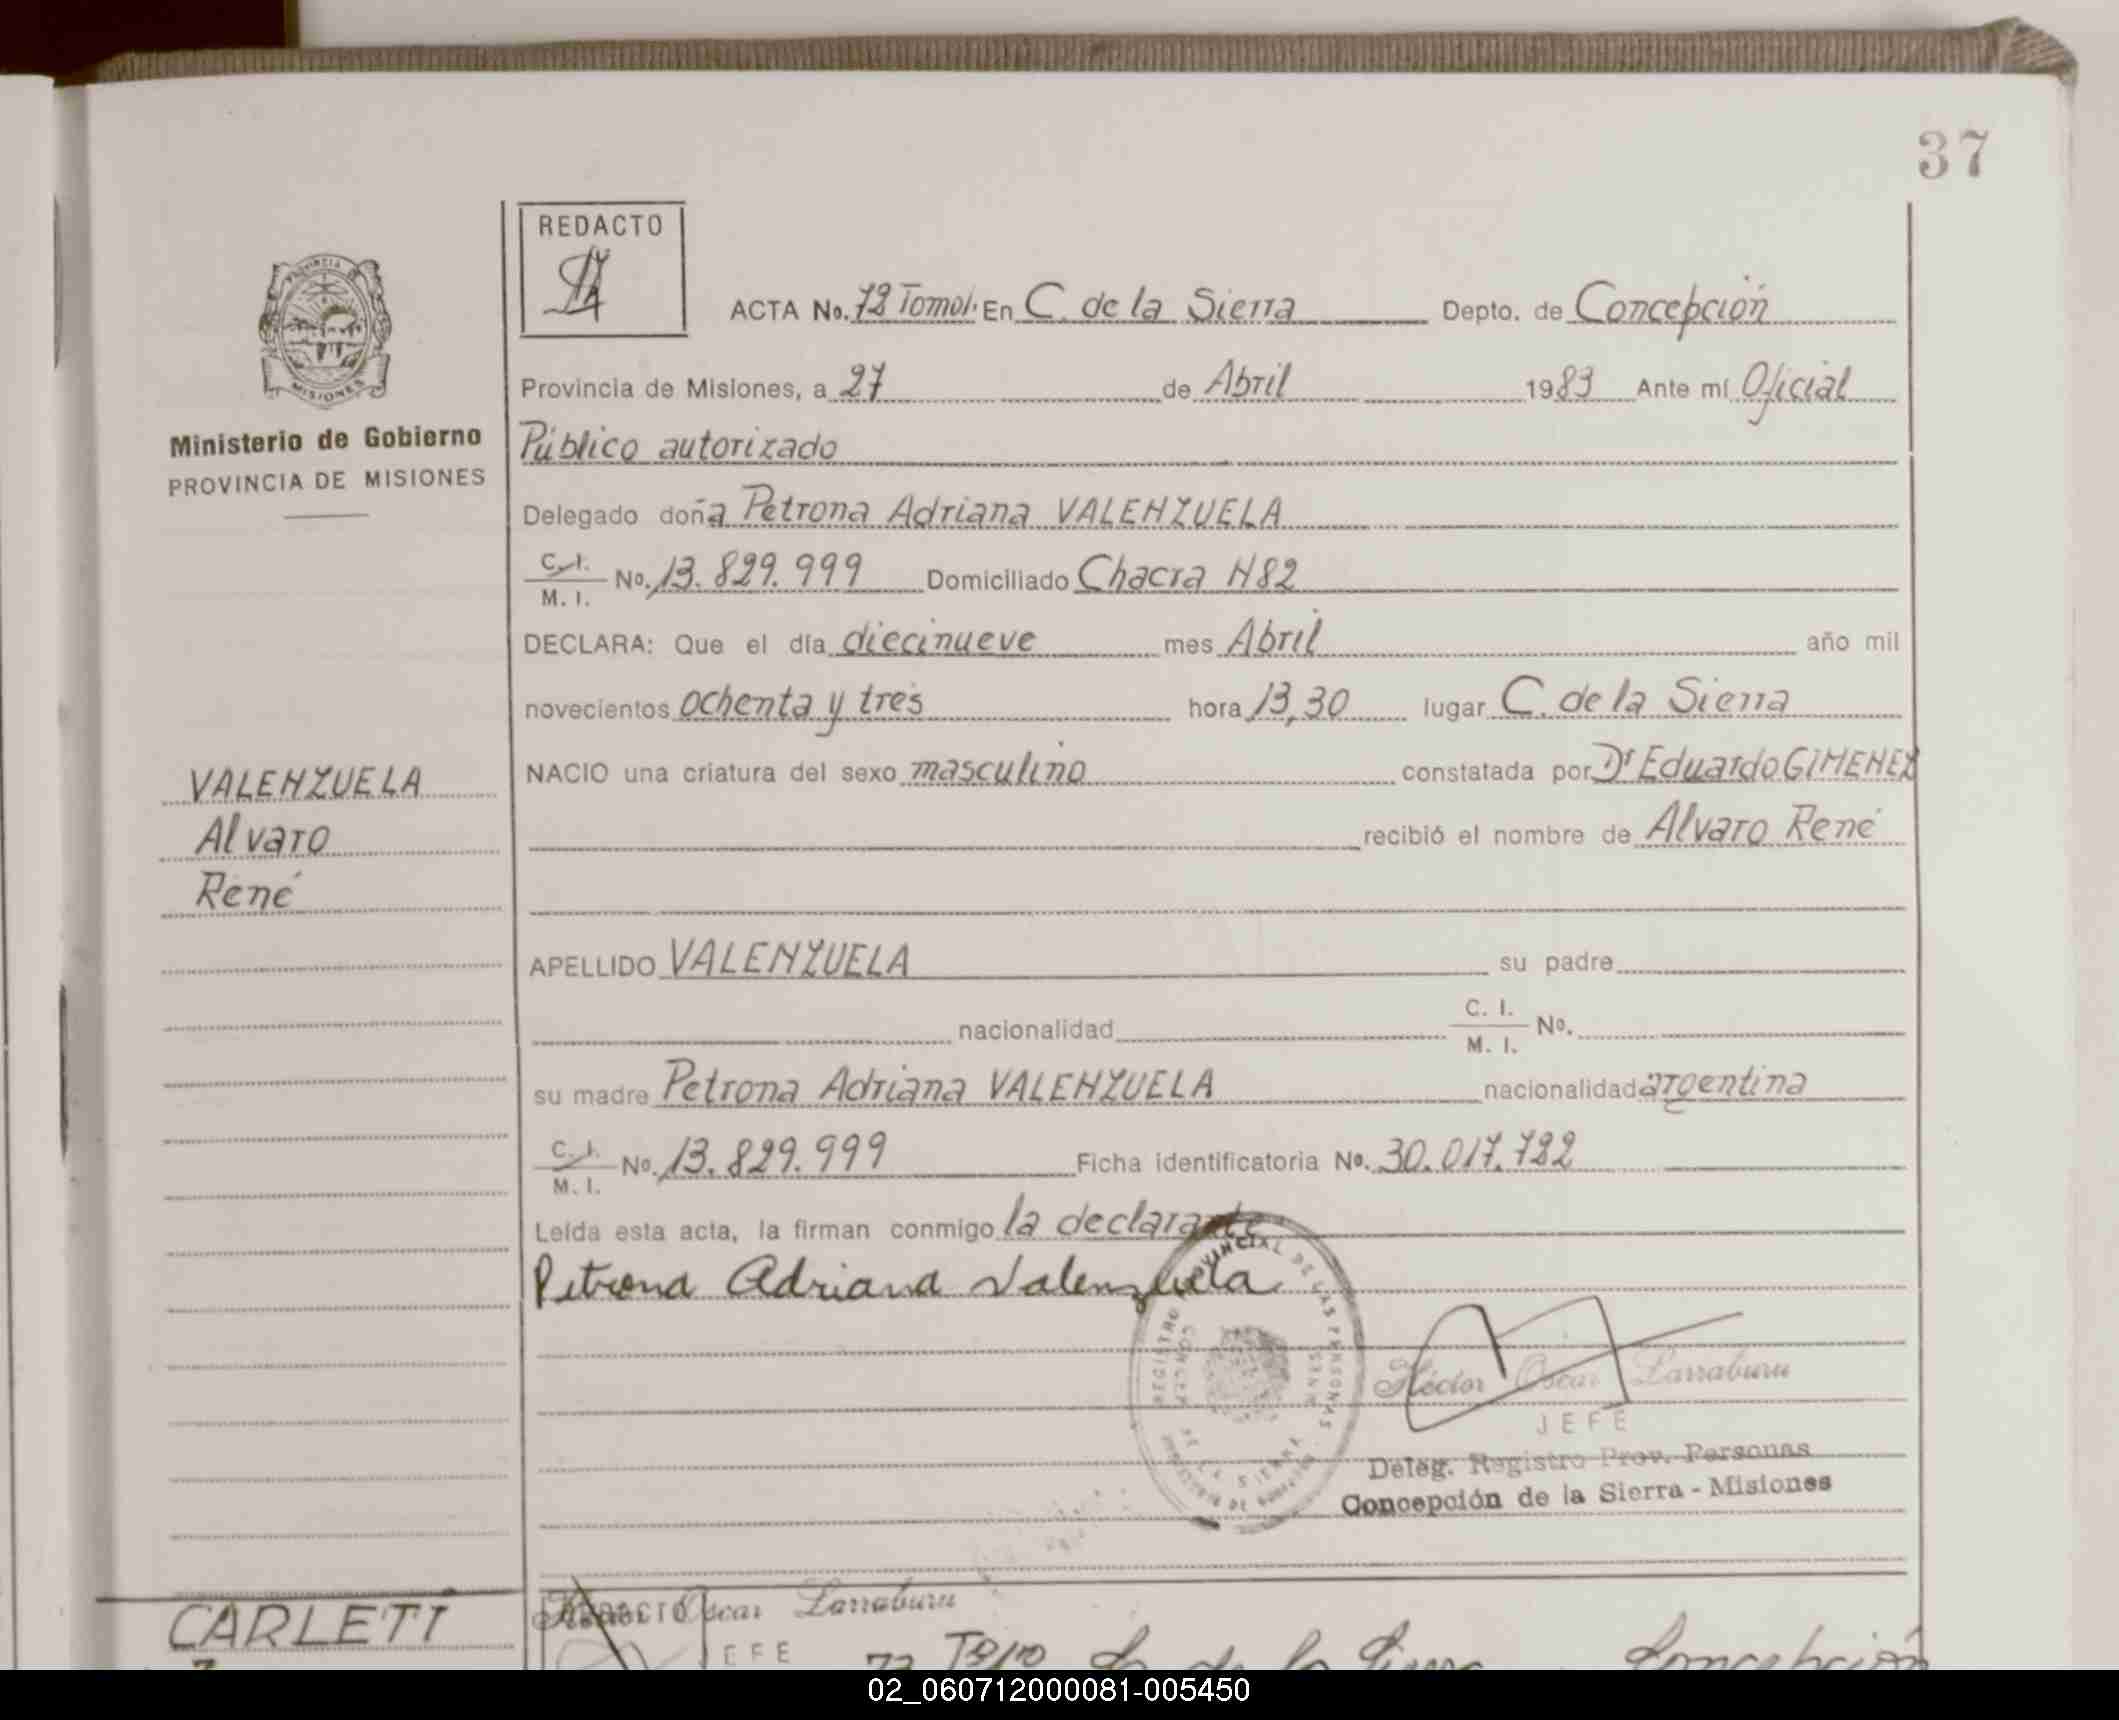 37
REDACTO
ACTA No. 72 Tomo I. En C. de la Sierra Depto. de Concepción
PROVINCIA DE
MISIONES
Ministerio de Gobierno
PROVINCIA DE MISIONES
Provincia de Misiones, a 27 de Abril 1983 Ante mí Oficial
Público autorizado
Delegado doña Petrona Adriana VALENZUELA
C. I.
M. I. No. 13.829.999 Domiciliado Chacra N82
DECLARA: Que el día diecinueve mes Abril año mil
novecientos ochenta y tres hora 13,30 lugar C. de la Sierra
NACIO una criatura del sexo masculino constatada por Dr Eduardo GIMENEZ
recibió el nombre de Alvaro René
VALENZUELA
Alvaro
René
APELLIDO VALENZUELA su padre
nacionalidad C. I.
M. I. No.
su madre Petrona Adriana VALENZUELA nacionalidad argentina
C. I.
M. I. No. 13.829.999 Ficha identificatoria No. 30.017.722
Leída esta acta, la firman conmigo la declarante
Petrona Adriana Valenzuela
REGISTRO PROVINCIAL DE LAS PERSONAS
DE LA SIERRA
Héctor Oscar Larraburu
JEFE
Deleg. Registro Prov. Personas
Concepción de la Sierra - Misiones
CARLETT
Oscar Larraburu
JEFE
73 de la Sierra Concepción
02_060712000081-005450